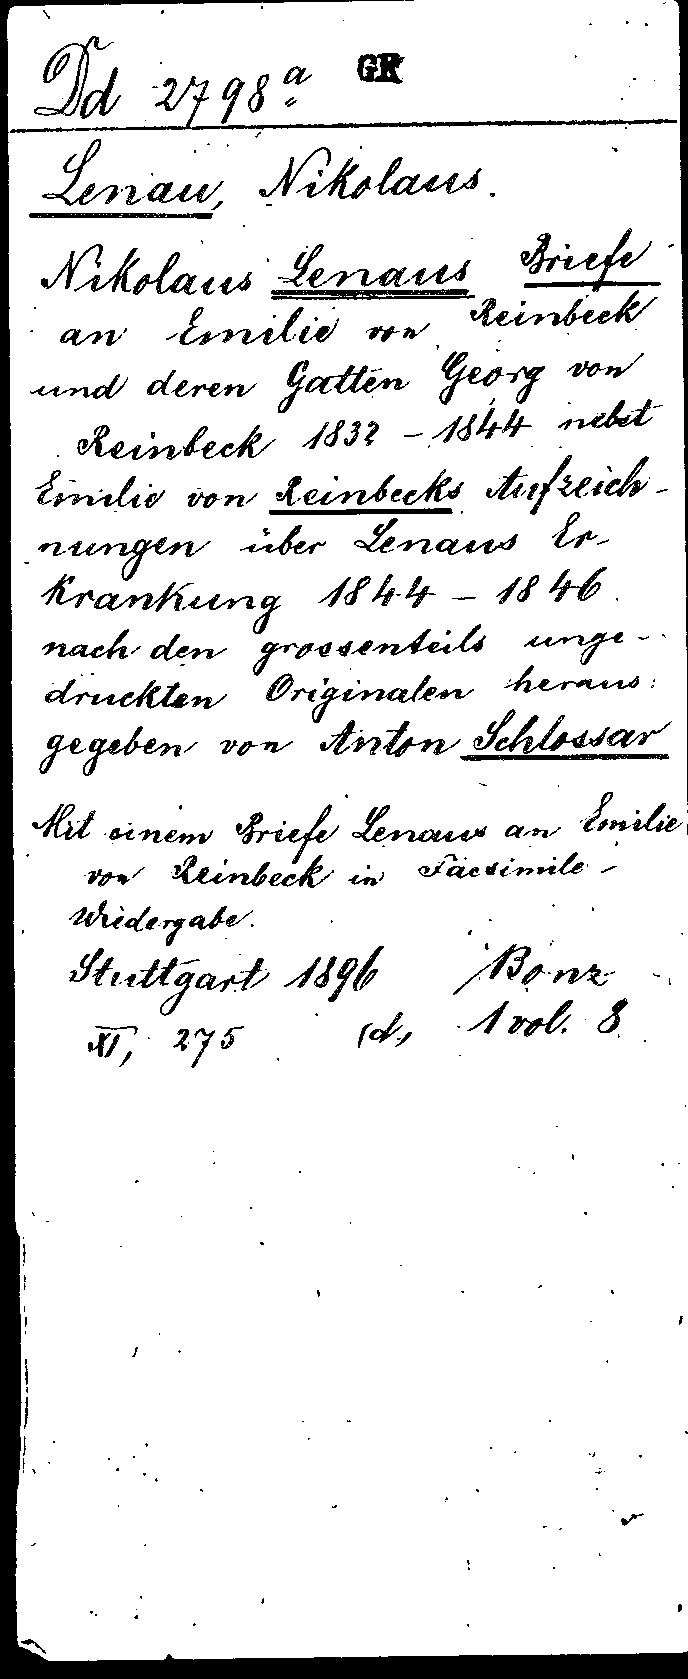 Dd 2798a GR
Lenau, Nikolaus.
Nikolaus Lenaus Briefe
an Emilie von Reinbeck
und deren Gatten Georg von
Reinbeck 1832 - 1844 nebst
Emilie von Reinbecks Aufzeich-
nungen über Lenaus Er-
krankung 1844 - 1846
nach den grossenteils unge-
druckten Originalen heraus:
gegeben von Anton Schlossar
Mit einem Briefe Lenaus an Emilie
von Reinbeck in Facsimile-
Wiedergabe.
Stuttgart 1896 Bonz
XI, 275 (d, 1 vol. 8